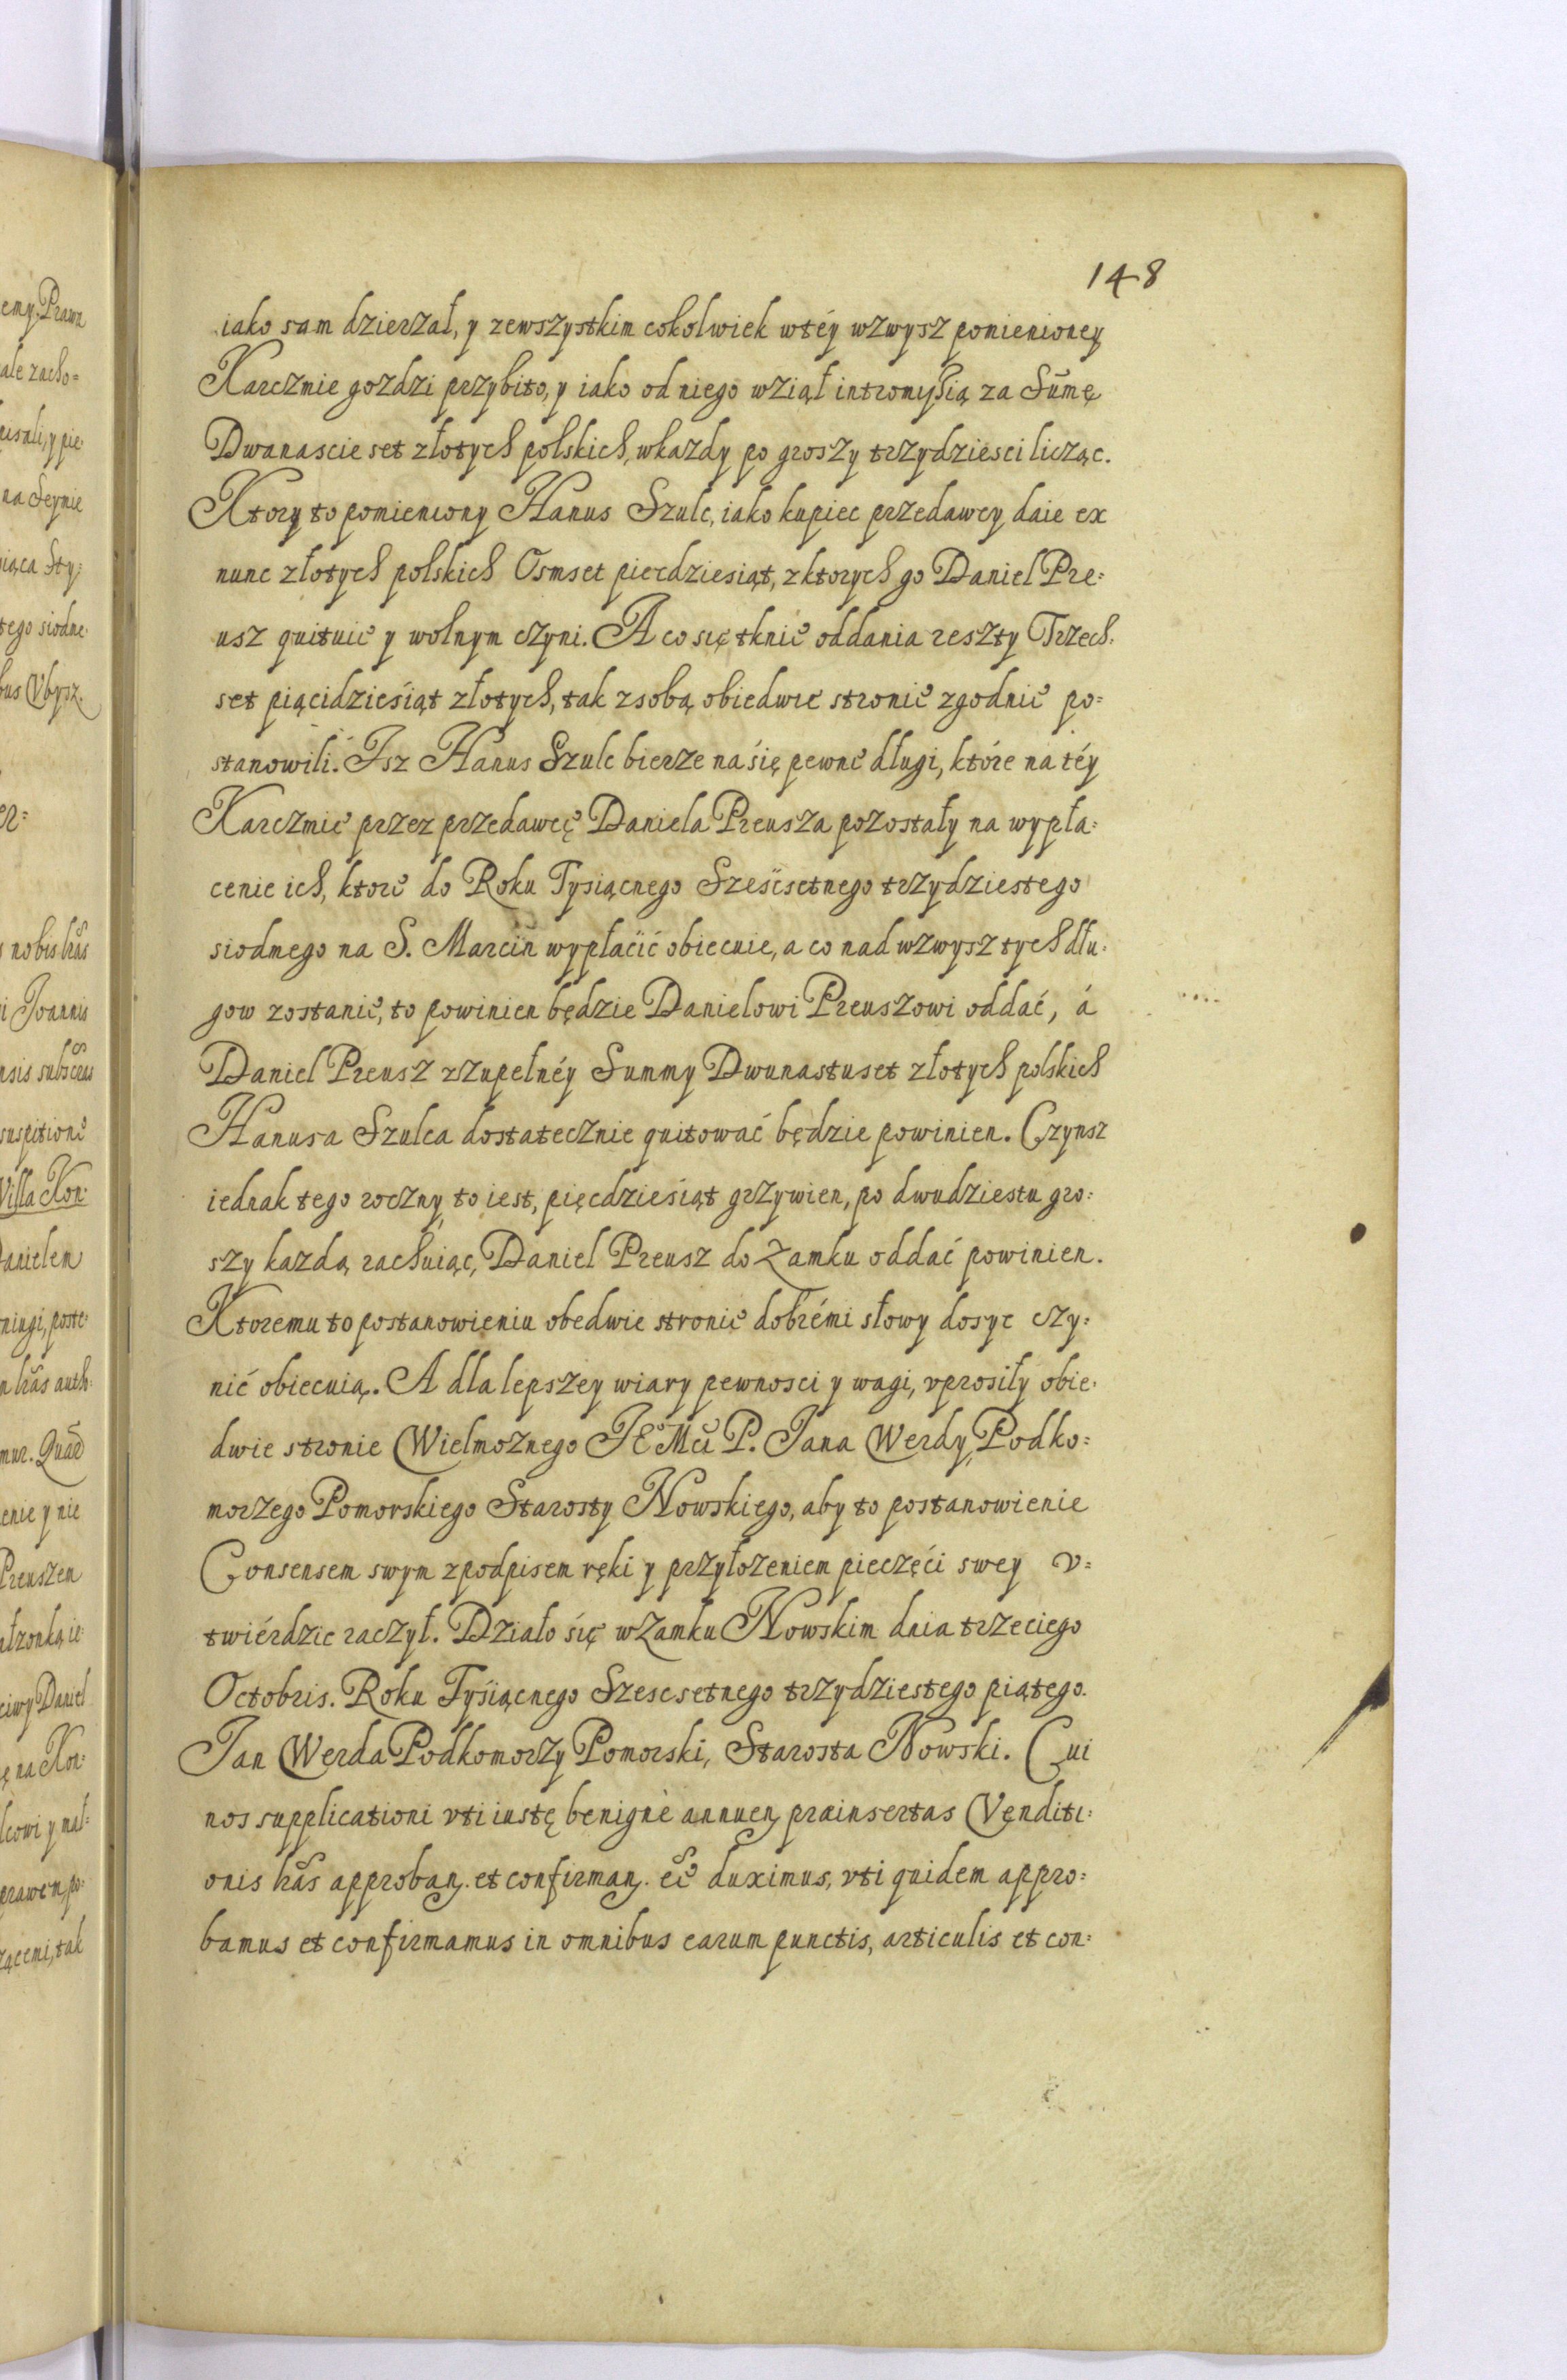 148
iako sam dzierzał, y zewszystkim cokolwiek wtéy wzwysz pomienioney
Karczmie gozdzi przybito, y iako od niego wziął intromyßią za Sūmę
Dwanascie set złotych polskich, wkazdy po groszy trzydziesci licząc.
Ktory to pomieniony Hanus Szulc, iako kupiec przedawcy daie ex
nunc złotych polskich Osmset pierdziesiąt, z ktorych go Daniel Pre=
usz quituie y wolnym czyni. A co się tknie oddania reszty Trzech
set piącidziesiąt złotych, tak z sobą obiedwie stronie zgodnie po=
stanowili. Isz Hanus Szulc bierze na się pewne długi, które na téy
Karczmie przez przedawcę Daniela Preusza pozostały na wypła=
cenie ich, ktore do Roku Tysiącnego Sześcsetnego trzydziestego
siodmego na S. Marcin wypłacić obiecuie, a co nad wzwysz tych dłu=
gow zostanie, to powinien będzie Danielowi Preuszowi oddać, á
Daniel Preusz z zupełnéy Summy Dwunastuset złotych polskich
Hanusa Szulca dostatecznie quitować będzie powinien. Czynsz
iednak tego roczny, to iest, pięcdziesiąt grzywien, po dwudziestu gro=
szy kazdą rachuiąc, Daniel Preusz do Zamku oddać powinien.
Ktoremu to postanowieniu obedwie stronie dobrémi słowy dosyc czy=
nić obiecuią. A dla lepszey wiary pewnosci y wagi, vprosiły obie=
dwie stronie Wielmoznego JE Mci P. Jana Werdy Podko=
morzego Pomorskiego Starosty Nowskiego, aby to postanowienie
Consensem swym z podpisem ręki y przyłozeniem pieczęci swey v=
twiérdzic raczył. Działo się w Zamku Nowskim dnia trzeciego
Octobris. Roku Tysiącnego Szescsetnego trzydziestego piątego.
Jan Werda Podkomorzy Pomorski, Starosta Nowski. Cui
nos supplicationi vti iustę benignè annuen. præinsertas Venditi=
onis lr̃as approban. et confirman. eẽ duximus, vti quidem appro=
bamus et confirmamus in omnibus earum punctis, articulis et con=